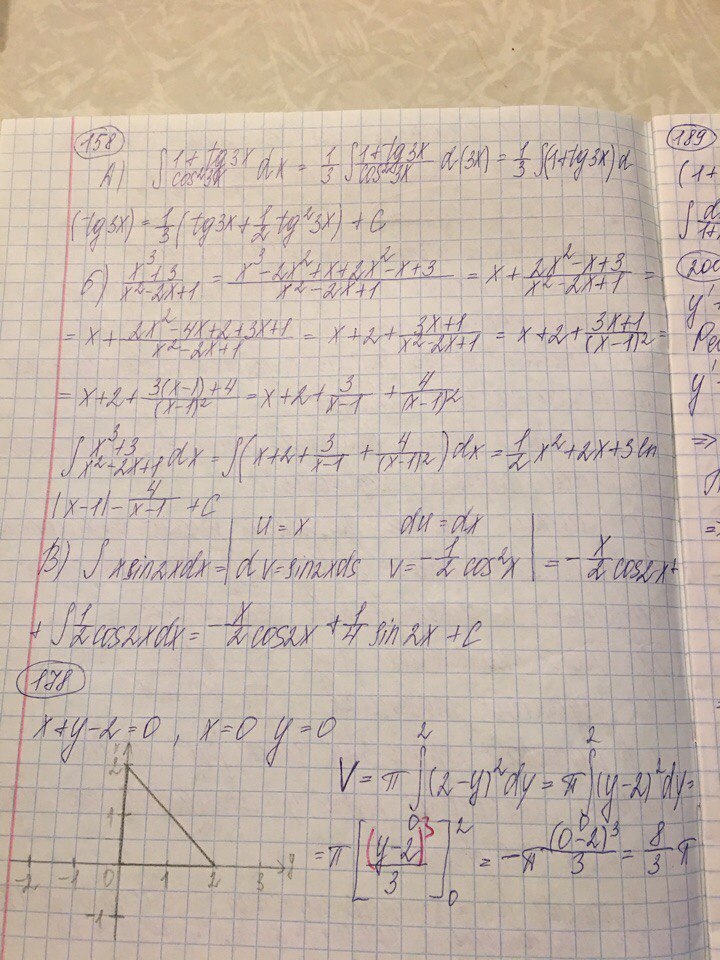 158
А) ∫ (1+tg3x)/(cos²3x) dx = 1/3 ∫ (1+tg3x)/(cos²3x) d(3x) = 1/3 ∫(1+tg3x) d
(tg3x) = 1/3 (tg3x + 1/2 tg²3x) + C
б) (x³+3)/(x²-2x+1) = (x³-2x²+x+2x²-x+3)/(x²-2x+1) = x + (2x²-x+3)/(x²-2x+1) =
= x + (2x²-4x+2+3x+1)/(x²-2x+1) = x+2+ (3x+1)/(x²-2x+1) = x+2+ (3x+1)/(x-1)² =
= x+2+ (3(x-1)+4)/(x-1)² = x+2+ 3/(x-1) + 4/(x-1)²
∫ (x³+3)/(x²-2x+1) dx = ∫(x+2+ 3/(x-1) + 4/(x-1)²) dx = 1/2 x²+2x+3ln
|x-1| - 4/(x-1) + C
В) ∫ x sin2xdx = | u = x du = dx
dv = sin2xds v = -1/2 cos²x | = -x/2 cos2x+
+ ∫ 1/2 cos2xdx = -x/2 cos2x + 1/4 sin2x + C
178
x+y-2=0, x=0 y=0
V = π ∫₀² (2-y)² dy = π ∫₀² (y-2)² dy =
= π [(y-2)³/3]₀² = -π (0-2)³/3 = 8/3 π
x
2
1
-2 -1 0 1 2 3 y
-1
189
(1+
∫ d
1+
200
y'
Ре
y'
=>
=>